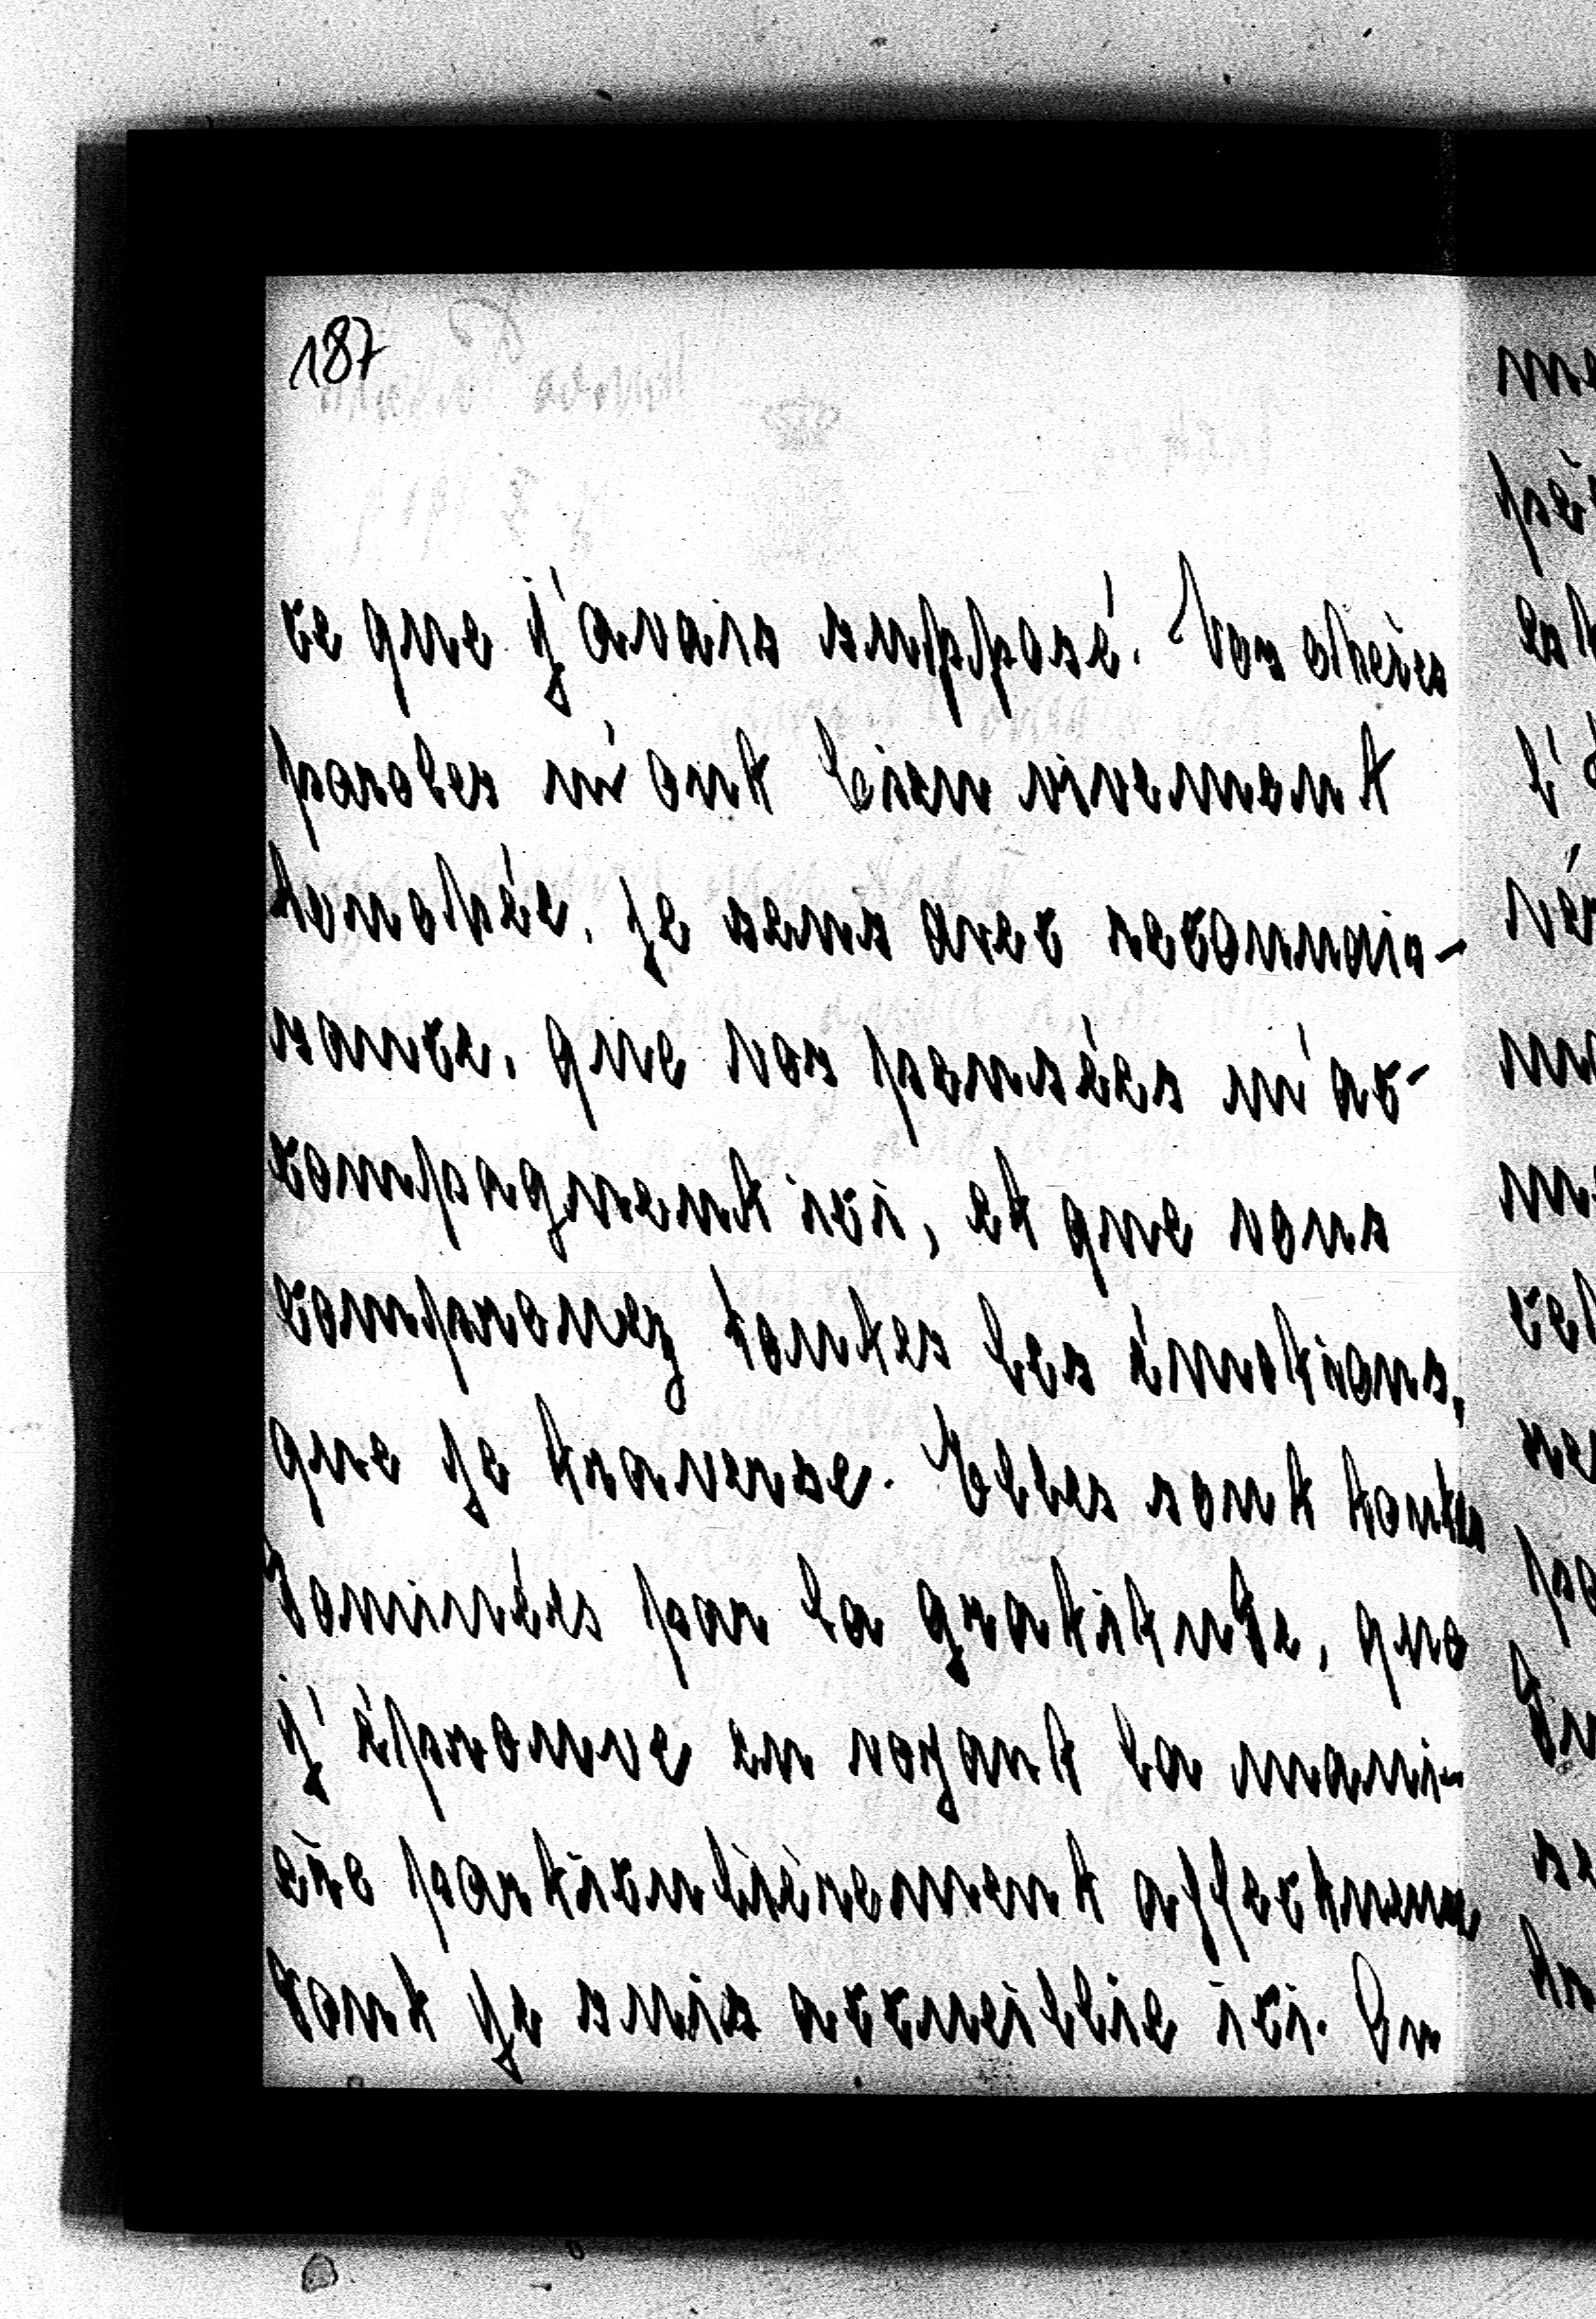 187
ce que j'avais supposé. Vos chères
paroles m'ont bien vivement
touchée. Je sens avec reconnais-
sance, que vos pensées m'ac-
compagnent ici, et que vous
comprenez toutes les émotions,
que je traverse. Elles sont toutes
dominées par la gratitude, que
j'éprouve en voyant la mani-
ère particulièrement affectueuse
dont je suis accueillie ici. En